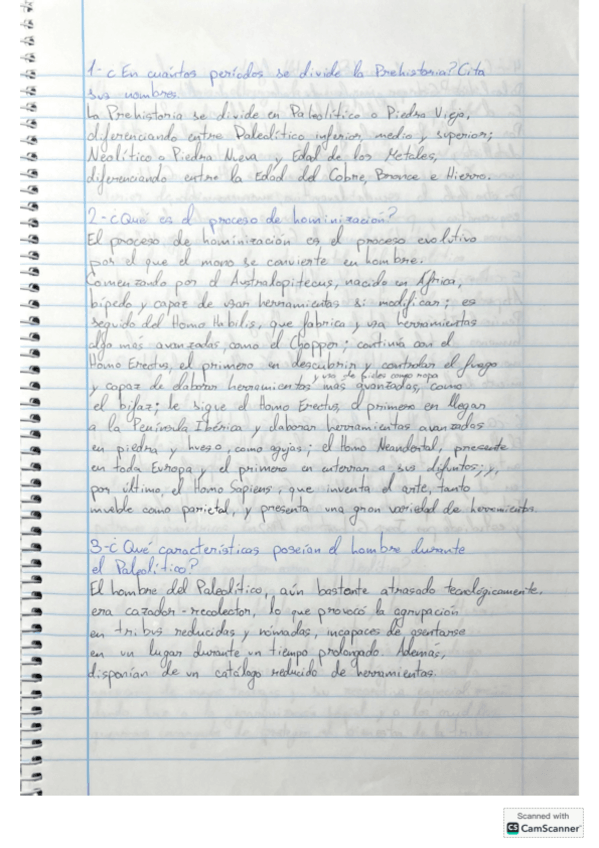 1-¿En cuántos períodos se divide la Prehistoria? Cita
sus nombres.
La Prehistoria se divide en Paleolítico o Piedra Vieja,
diferenciando entre Paleolítico inferior, medio y superior;
Neolítico o Piedra Nueva y Edad de los Metales,
diferenciando entre la Edad del Cobre, Bronce e Hierro.
2-¿Qué es el proceso de hominización?
El proceso de hominización es el proceso evolutivo
por el que el mono se convierte en hombre.
Comenzando por el Australopitecus, nacido en África,
bípedo y capaz de usar herramientas si modificar; es
seguido del Homo Habilis, que fabrica y usa herramientas
algo más avanzadas, como el Chopper; continúa con el
Homo Erectus, el primero en descubrir y controlar el fuego
y uso de pieles como ropa
y capaz de elaborar herramientos más avanzadas, como
el bifaz; le sigue el Homo Erectus, el primero en llegar
a la Península Ibérica y elaborar herramientas avanzadas
en piedra y hueso, como agujas; el Homo Neandertal, presente
en toda Europa y el primero en enterrar a sus difuntos; y,
por último, el Homo Sapiens, que inventa el arte, tanto
mueble como parietal, y presenta una gran variedad de herramientas.
3-¿Qué características poseían el hombre durante
el Paleolítico?
El hombre del Paleolítico, aún bastante atrasado tecnológicamente,
era cazador-recolector, lo que provocó la agrupación
en tribus reducidas y nómadas, incapaces de asentarse
en un lugar durante un tiempo prolongado. Además,
disponían de un catálogo reducido de herramientas.
Scanned with
CS CamScanner